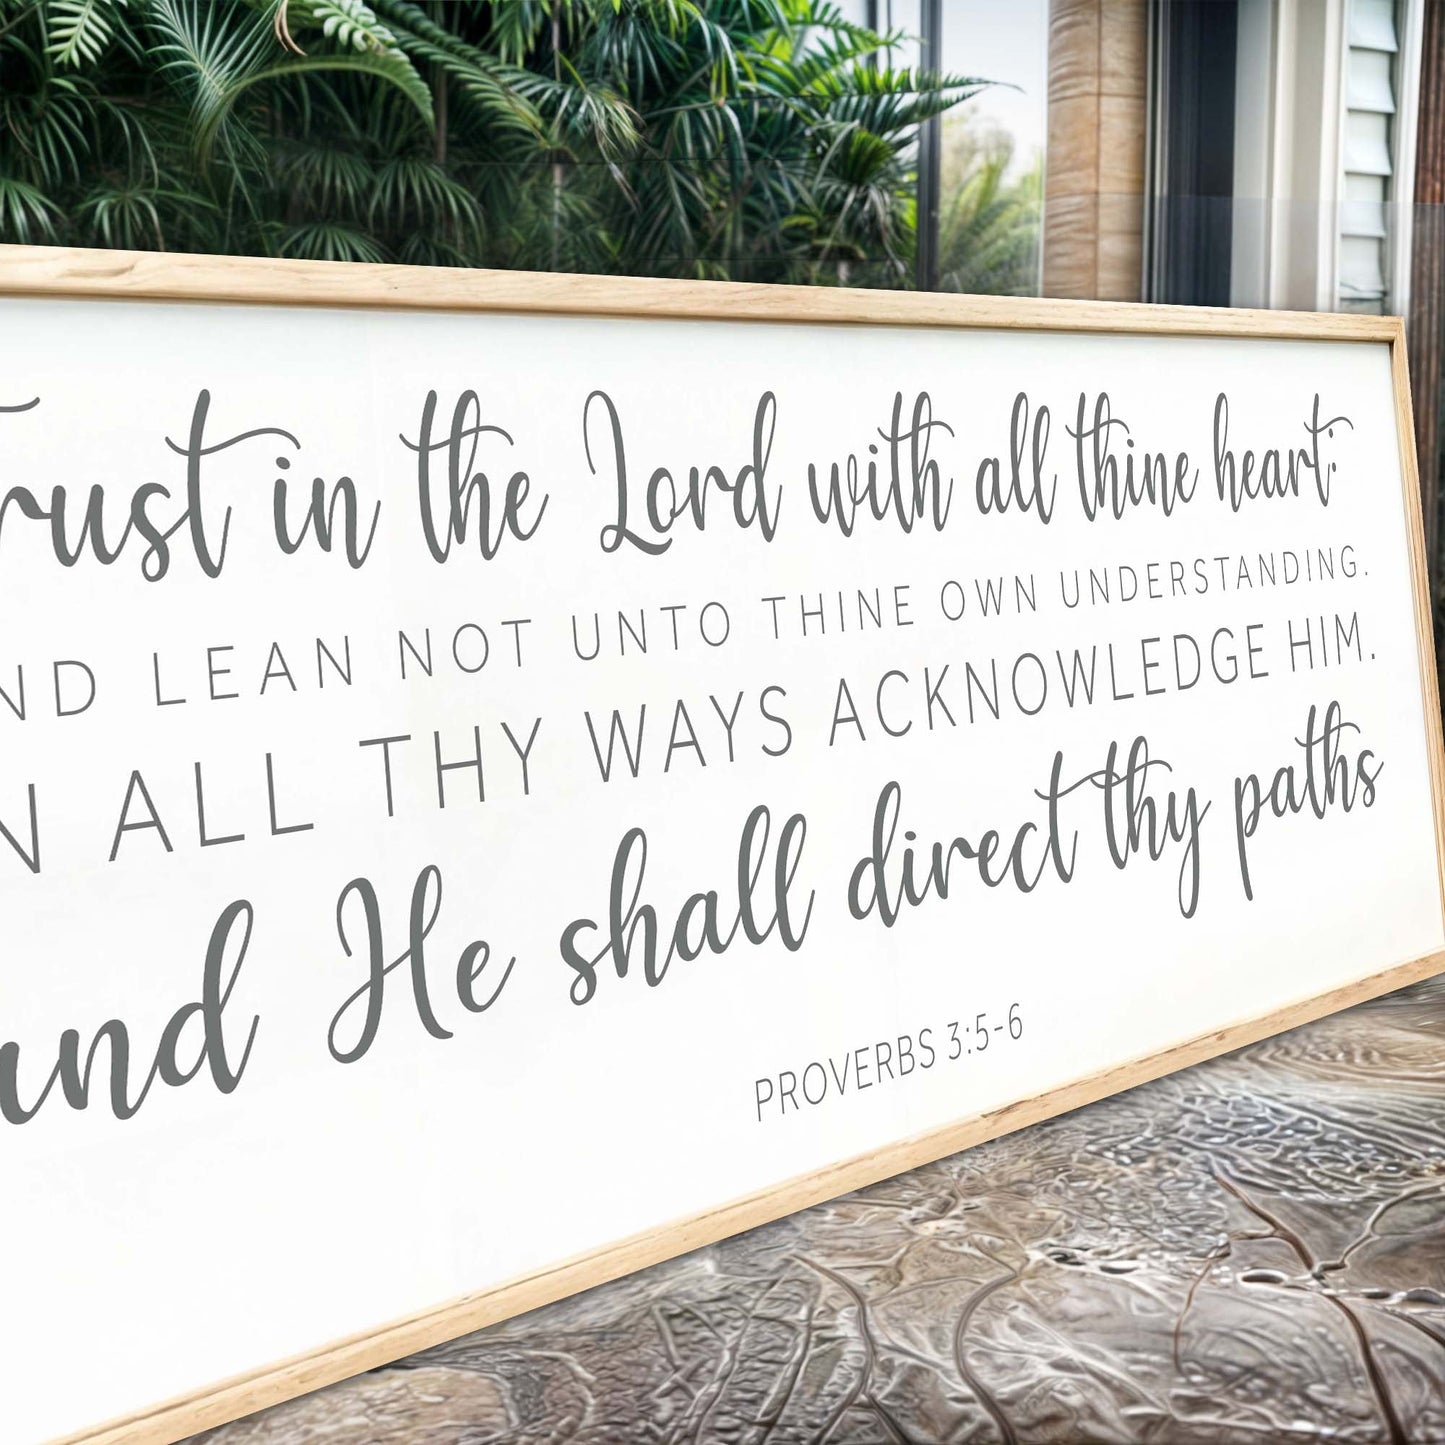 Trust in the Lord with all thine heart:
AND LEAN NOT UNTO THINE OWN UNDERSTANDING.
IN ALL THY WAYS ACKNOWLEDGE HIM.
and He shall direct thy paths
PROVERBS 3:5-6